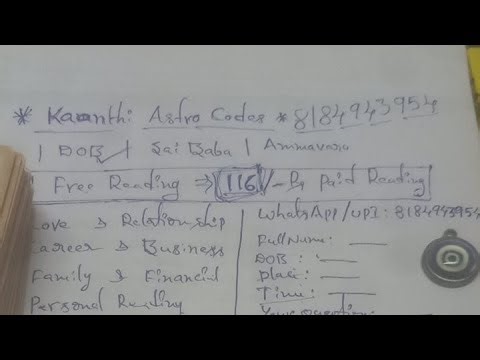 * Kaanthi Astro Codes * 8184943954
| DOB ✓ | Sai Baba | Ammavaru
Free Reading ⇒ 116/- Rs Paid Reading
Love & Relationship
Career & Business
Family & Financial
Personal Reading
WhatsApp/UPI: 8184943954
Full Name: __
DOB: __
place: __
Time: __
Your question: